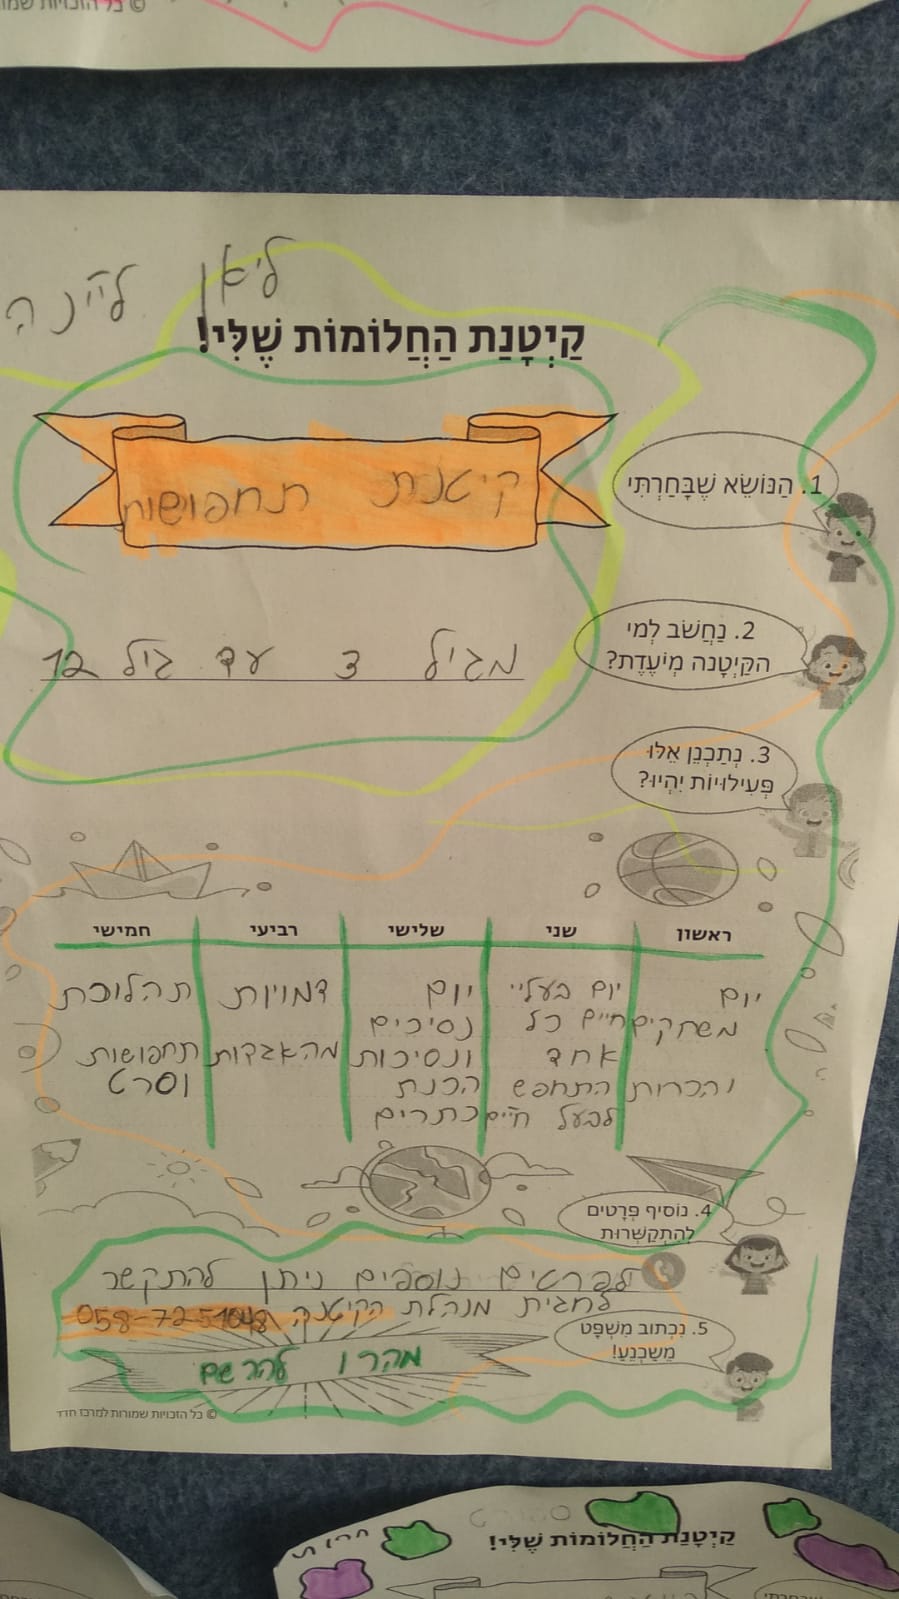 © כל הזכויות שמו
ליאן
קַיְטָנַת הַחֲלוֹמוֹת שֶׁלִּי!
1. הַנּוֹשֵׂא שֶׁבָּחַרְתִּי
קיטנת תחפושות
2. נַחֲשֹׁב לְמִי
הַקַּיְטָנָה מְיֹעֶדֶת?
מגיל 3 עד גיל 12
3. נְתַכְנֵן אֵלּוּ
פְּעִילוּיוֹת יִהְיוּ?
ראשון שני שלישי רביעי חמישי
יום
משחקים
והכרות
יום בעליי
חיים כל
אחד
התחפש
לבעל חיים
יום
נסיכים
ונסיכות
הכנת
כתרים
דמויות
מהאגדות
תהלוכת
תחפושות
וסרט
4. נוֹסִיף פְּרָטִים
לְהִתְקַשְּׁרוּת
לפרטים נוספים ניתן להתקשר
לחגית מנהלת הקיטנה
5. נִכְתּוֹב מִשְׁפָּט
מְשַׁכְנֵעַ!
מהרו להרשם
© כל הזכויות שמורות למרכז חדד
קַיְטָנַת הַחֲלוֹמוֹת שֶׁלִּי!